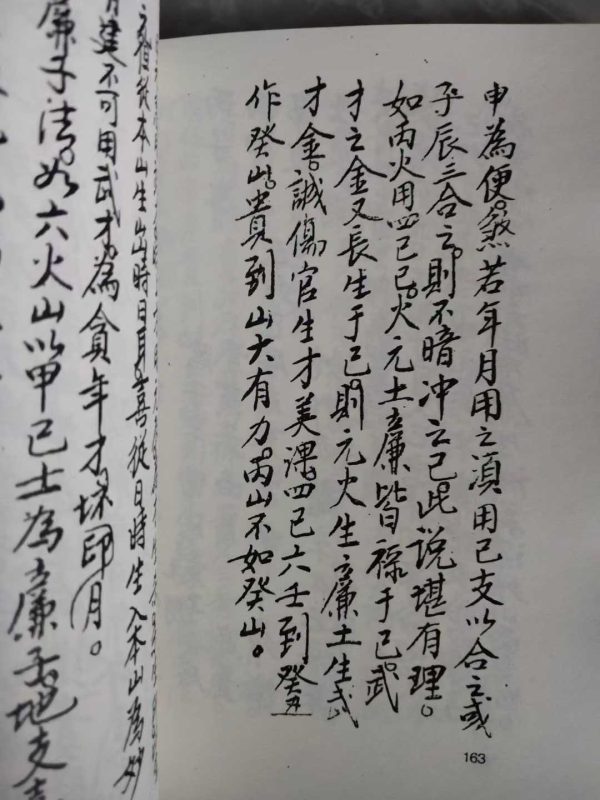 申為便。煞若年月用之須用巳支以合之或
子辰三合之則不暗冲之巳。此説堪有理。
如丙火用四己巳。火元土立廉皆祿于巳。武
才之金又長生于巳。則元火生立廉土生武
才金。誠傷官生才美课。四巳六壬到癸丑
作癸山。貴到山大有力。丙山不如癸山。
163
立廉從本山生出時日再喜從日時生入本山為妙
月建不可用武才。為貪年才坏印月。
廉子法。如六火山以甲己士為立廉子。地支